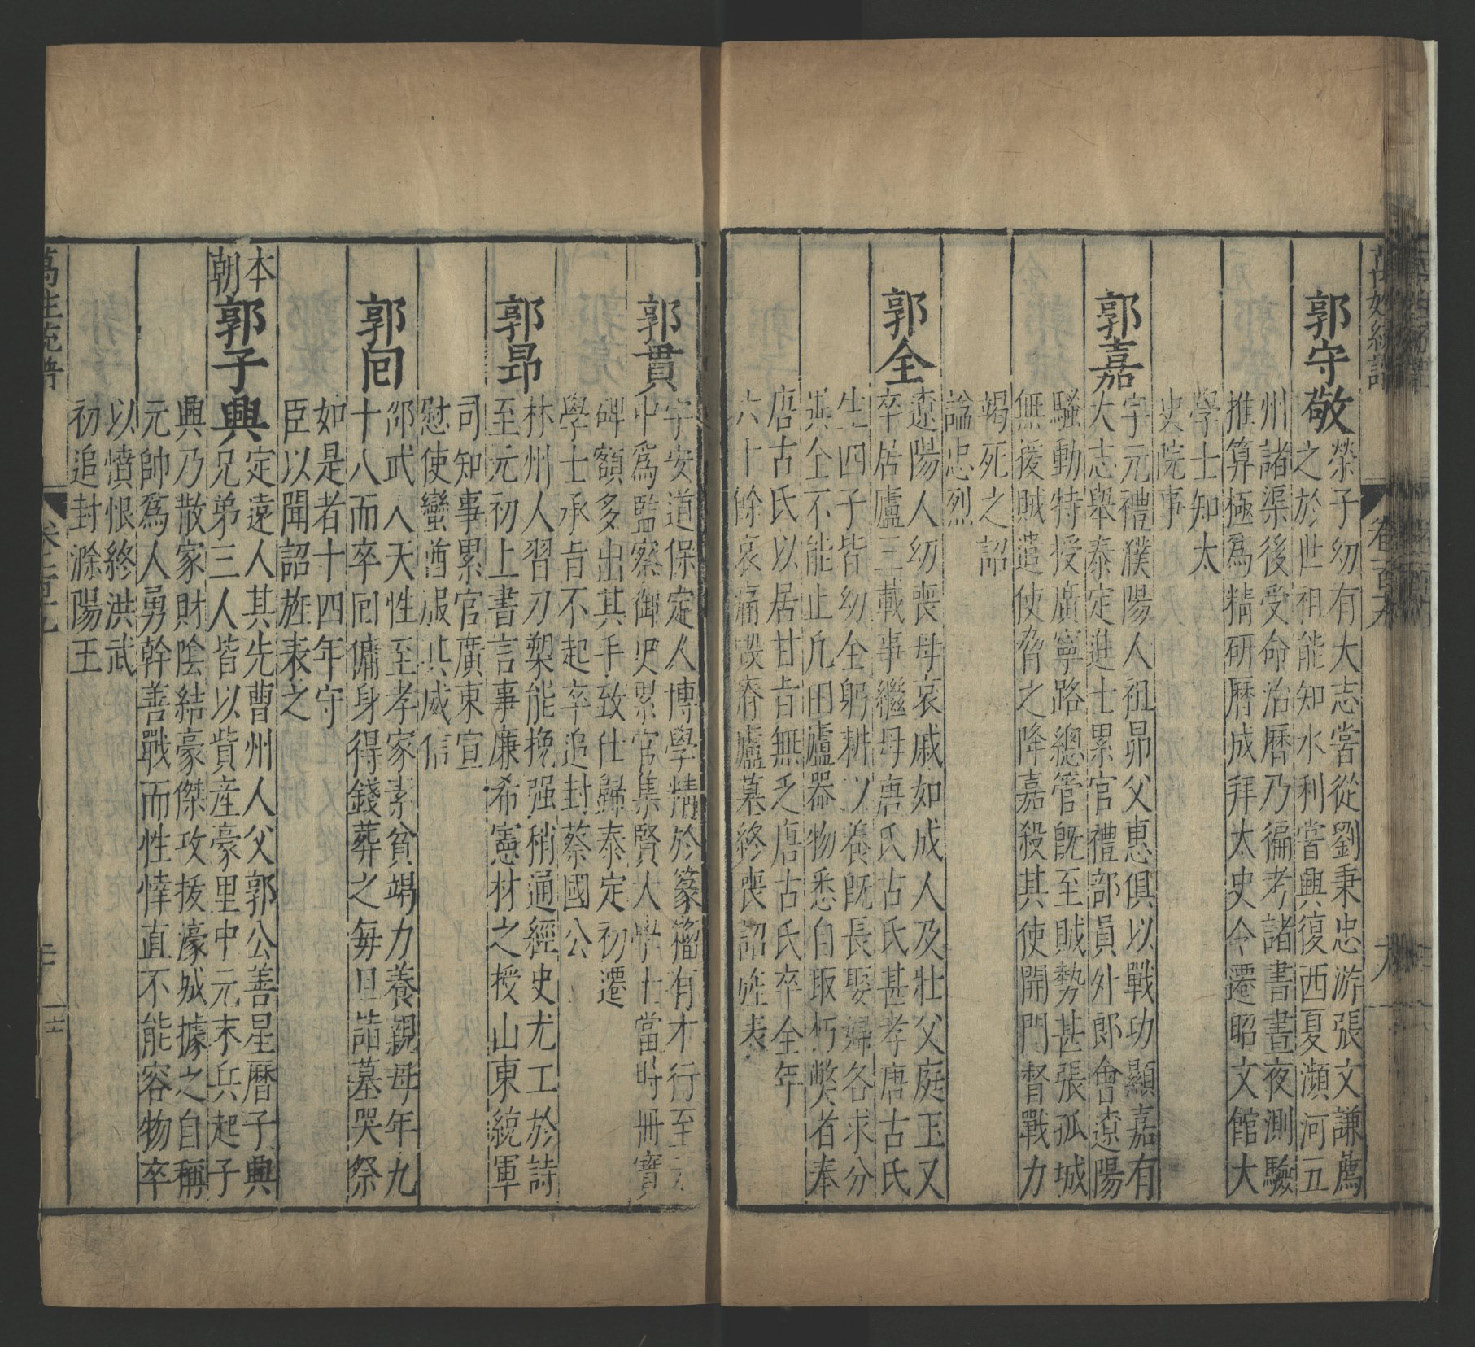 萬姓統譜
卷之一百十八
郭守敬
榮子幼有大志嘗從劉秉忠游張文謙薦
之於世祖能知水利嘗興復西夏瀕河五
州諸渠後受命治曆乃徧考諸書晝夜測驗
推算極爲精研曆成拜太史令遷昭文館大
學士知太
史院事
郭嘉
字元禮濮陽人祖昻父惠俱以戰功顯嘉有
大志舉泰定進士累官禮部員外郎會遼陽
騷動特授廣寧路總管旣至賊勢甚張孤城
無援賊遣使脅之降嘉殺其使開門督戰力
竭死之詔
謚忠烈
郭全
遼陽人幼喪母哀戚如成人及壯父庭玉又
卒居廬三載事繼母唐氏古氏甚孝唐古氏
生四子皆幼全躬耕以養旣長娶婦各求分
異全不能止凡田廬器物悉自取朽獘者奉
唐古氏以居甘旨無乏唐古氏卒全年
六十餘哀痛毀瘠廬墓終喪詔旌表
郭貫
字安道保定人博學精於篆籀有才行至元
中爲監察御史累官集賢大學士當時冊寶
碑額多出其手致仕歸泰定初遷
學士承旨不起卒追封蔡國公
郭昻
林州人習刀槊能挽强稍通經史尤工於詩
至元初上書言事廉希憲材之授山東統軍
司知事累官廣東宣
慰使蠻酋服其威信
郭囘
邵武人天性至孝家素貧竭力養親母年九
十八而卒囘傭身得錢葬之每旦詣墓哭祭
如是者十四年守
臣以聞詔旌表之
本朝郭子興
定遠人其先曹州人父郭公善星曆子興
兄弟三人皆以貲産豪里中元末兵起子
興乃散家財陰結豪傑攻拔濠城據之自稱
元帥爲人勇幹善戰而性悻直不能容物卒
以憤恨終洪武
初追封滁陽王
萬姓統譜